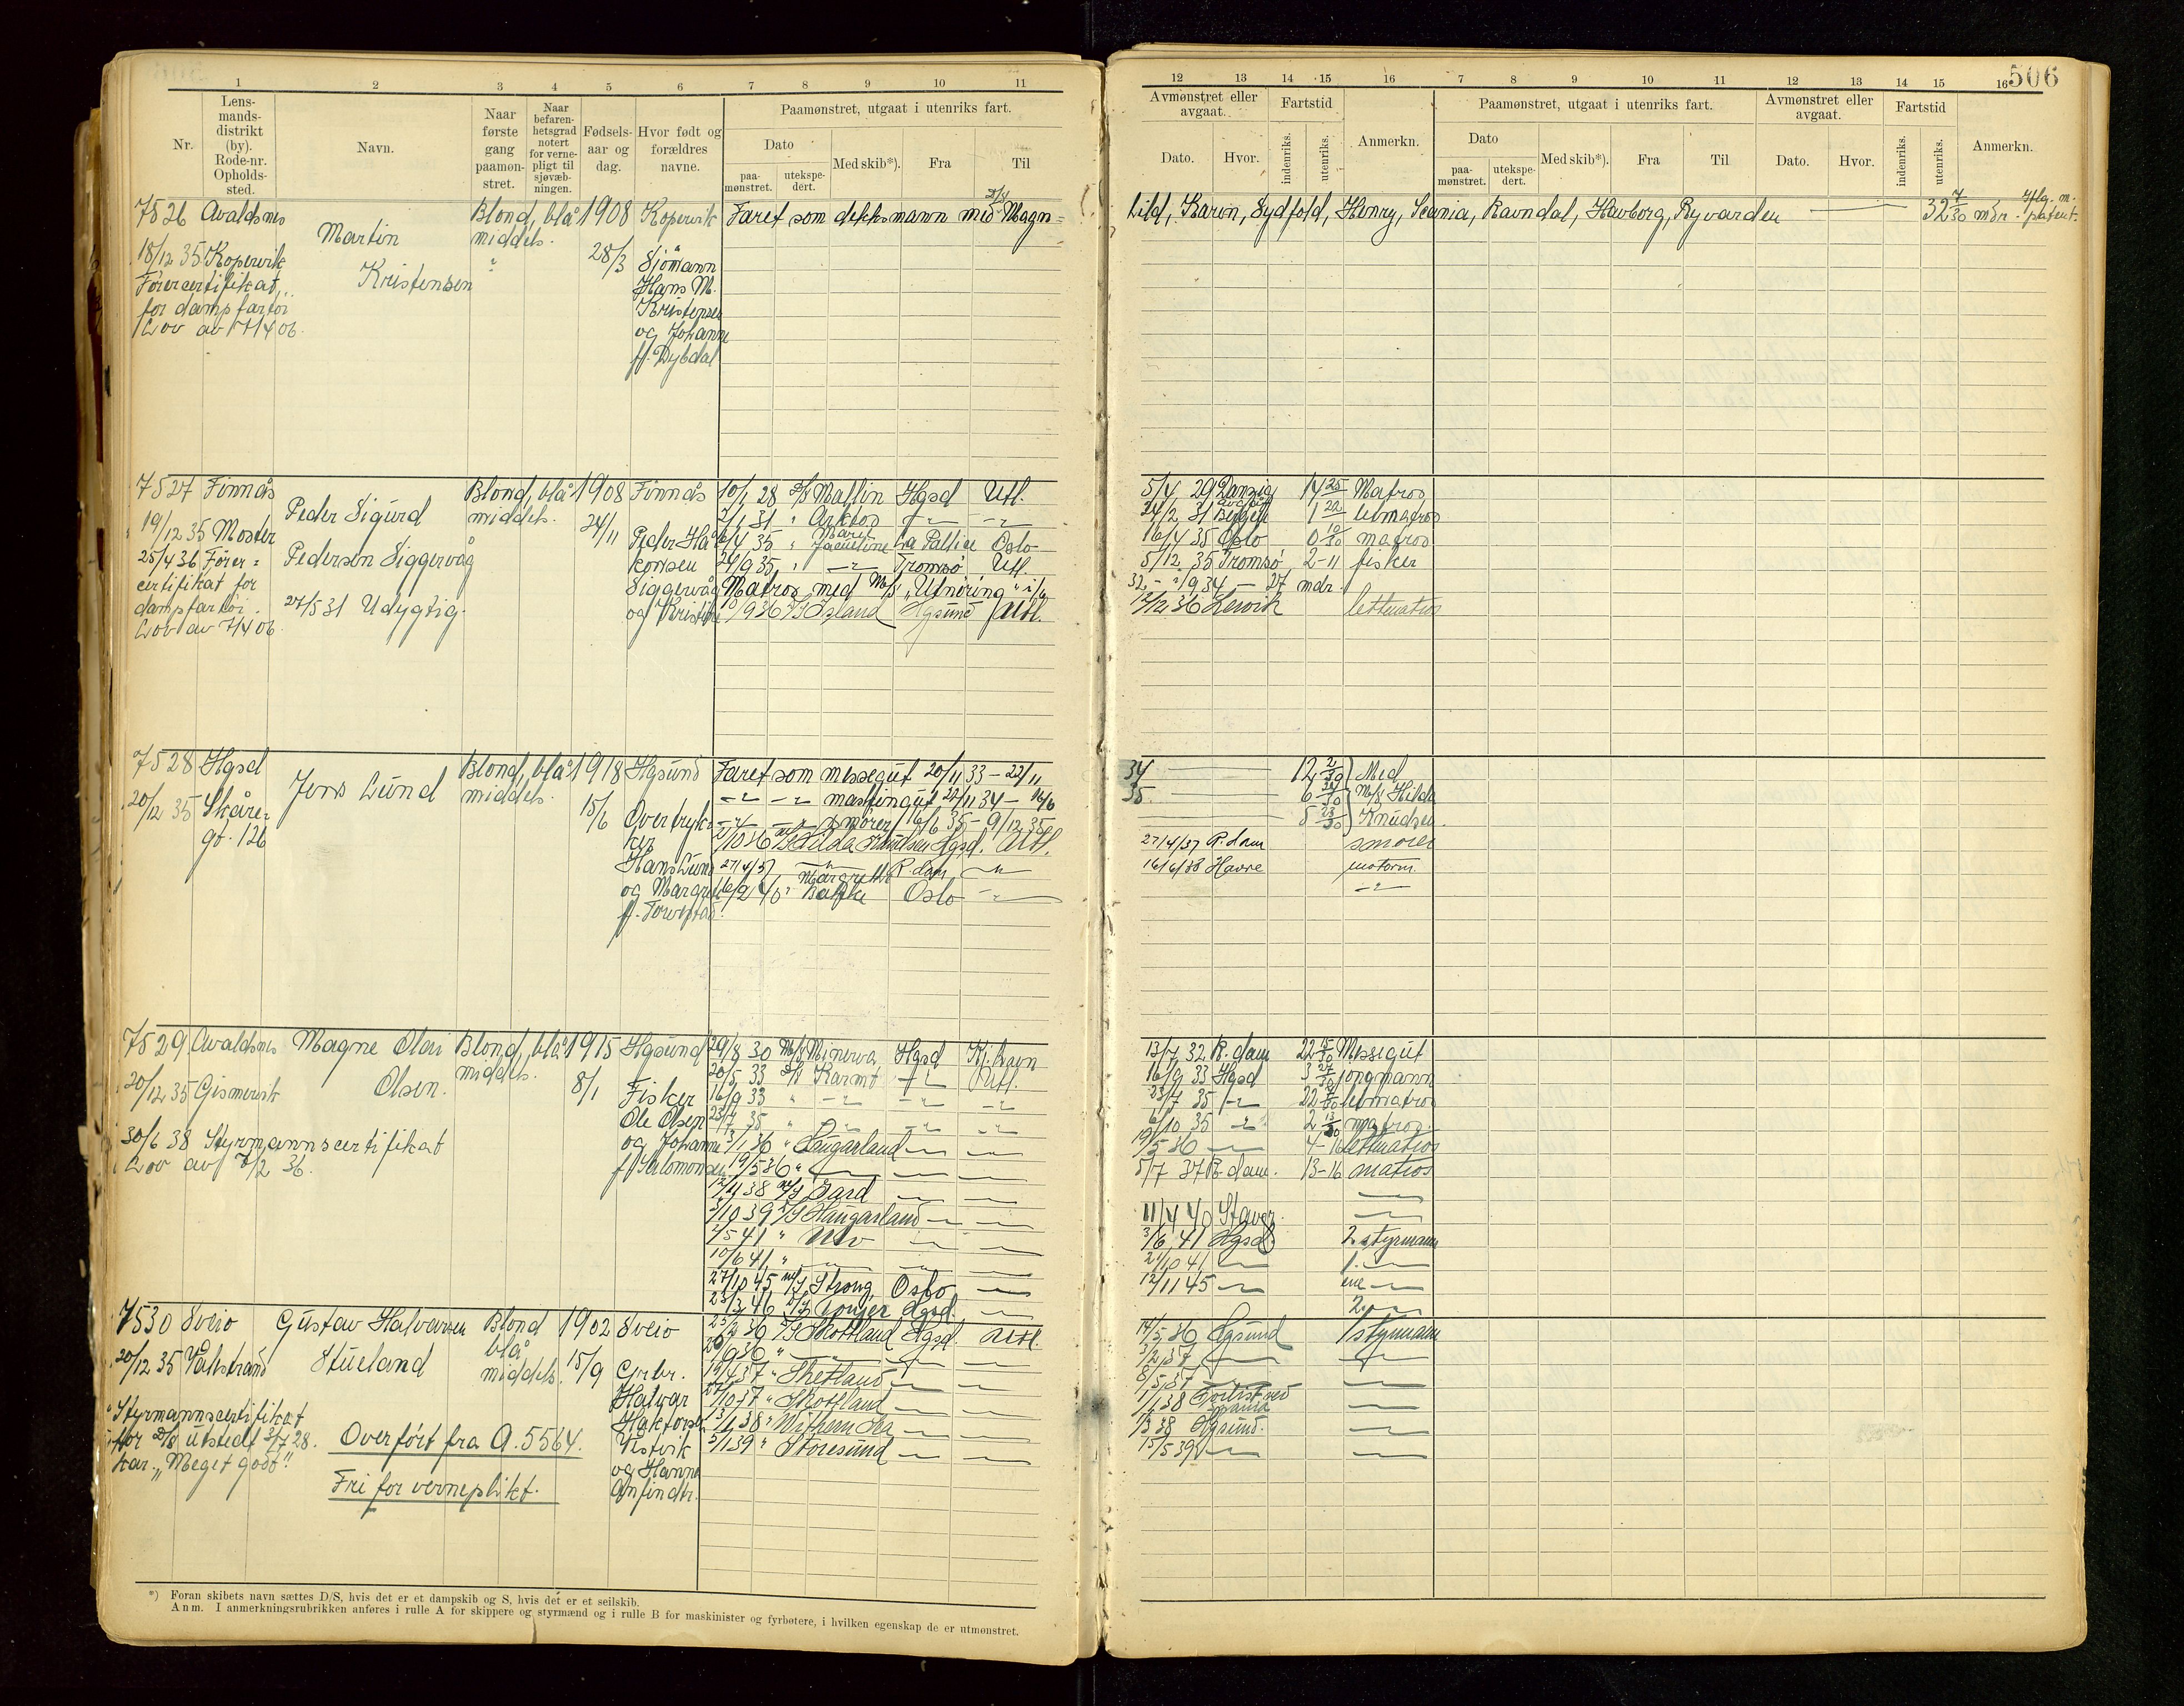 506
1 2 3 4 5 6 7 8 9 10 11
Nr.
Lens-
mands-
distrikt
(by).
Rode-nr.
Opholds-
sted.
Navn.
Naar
første
gang
paamøn-
stret.
Naar
befaren-
hetsgrad
notert
for verne-
pligt til
sjøvæb-
ningen.
Fødsels-
aar og
dag.
Hvor født og
forældres
navne.
Paamønstret, utgaat i utenriks fart.
Dato
paa-
mønstret.
utekspe-
dert.
Med skib*).
Fra
Til
12 13 14 15 16 7 8 9 10 11 12 13 14 15 16
Avmønstret eller
avgaat.
Dato.
Hvor.
Fartstid
indenriks.
utenriks.
Anmerkn.
Paamønstret, utgaat i utenriks fart.
Dato
paa-
mønstret.
utekspe-
dert.
Med skib*).
Fra
Til
Avmønstret eller
avgaat.
Dato.
Hvor.
Fartstid
indenriks.
utenriks.
Anmerkn.
7526 Avaldsnes
18/12 35 Kopervik
Førercertifikat
for dampfartøi
Lov av 17/4 06.
Martin
Kristensen
Blond, blå
middels.
1908
28/3
Kopervik
Sjömann
Hans M.
Kristensen
og Johanne
f. Dybdal
Faret som dekksmann med D/S Magn=
hild, Karin, Sydfold, Henry, Scania, Ravndal, Havborg, Ryvarden 32 7/30 mdr. Iflg. m. patent.
7527 Finnås
19/12 35 Moster
25/4 36 Fører=
certifikat for
dampfartøi.
Lov av 7/4 06.
Peder Sigurd
Pedersen Siggervåg
27/5 31 Udygtig.
Blond, blå
middels.
1908
24/11
Finnås
Peder Hå
konsen
Siggervåg
og Kristine
10/1 28 D/S Mallin Hgsd Utl.
2/1 31 " Arktos
6/4 35 " Marie Jaqueline La Pallice Oslo
24/9 35 " Tromsø Utl.
Matros med M/S "Utnöring" i/6
10/9 36 D/S Osland Hgsund Utl.
5/4 29 Danzig 14 25 Matros
24/2 31 Bergen 1 22 letmatros
16/4 35 Oslo 0 10/30 matros
5/12 35 Tromsø 2-11 fisker
32 - 1/9 34 - 27 mdr.
12/12 36 Lervik lettmatros
7528 Hgsd
20/12 35 Skåre=
gt. 126
Jens Lund
Blond, blå
middels.
1918
15/6
Hgsund
Overtryk
ker
Hans Lund
og Margret
f. Torvestad.
Faret som messegut 20/11 33 - 22/11
maskingut 22/11 34 - 16/6
smører 16/6 35 - 9/12 35
2/10 36 M/S Hilda Knudsen Hgsd. Utl.
27/4 37 R.dam
16/2 40 Margrethe Bakke Oslo
34 12 2/30 Med
35 6 24/30 M/S Hilda
5 23/30 Knudsen
27/4/37 R.dam smører
16/6/38 Havre motorm.
7529 Avaldsnes
20/12 35 Gismervik
30/6 38 Styrmannscertifikat
Lov av 7/2 36.
Magne Olai
Olsen.
Blond, blå
middels.
1915
8/1
Hgsund
Fisker
Ole Olsen
og Johanne
f. Salomonsen
29/8 30 M/S Minerva Hgsd Kj.havn
20/5 33 D/S Karmt Utl.
16/9 33 "
23/7 35 "
3/1 36 " Haugarland
19/5 36 "
12/11 38 M/S Gard
3/10 39 D/S Haugarland
2/5 41 " Ulv
10/6 41 "
27/10 45 M/S Strong Oslo
23/3 46 D/S Conjer Hgsd.
13/7 32 R.dam 22 15/30 Messegut
16/9 33 Hgsd 3 27/30 jongmann
23/7 35 22 letmatros
6/10 35 2 13/30 matros
19/5 36 4-16 lettmatros
5/7 37 R.dam. 13-16 matros
11/4 40 Stavgr.
3/6 41 Hgsd 2. styrmann
21/10 41 1.
12/11 45 ene
2.
7530 Sveio
20/12 35 Valestrand
Styrmannscertifikat
for D/S utstedt 3/7 28.
kar. "Meget godt"
Gustav Halvorsen
Stueland
Overfört fra A. 5564.
Fri for verneplikt.
Blond
blå
middels.
1902
15/9
Sveio
Grbr.
Halvar
Haktorsen
Vestvik
og Hanna
Anfindtr.
25/2 36 D/S Skottland Hgsd. Utl.
20/9 36 "
19/4 37 " Shetland
27/10 37 " Skottland
3/1 38 "
5/1 39 " Storesund
14/5 36 Hgsund 1 styrmann
3/2 37
8/5 37
1/1 38 Forlist ved
1/3 38 Hgsund.
15/5 39
*) Foran skibets navn sættes D/S, hvis det er et dampskib og S, hvis det er et seilskib.
Anm. I anmerkningsrubrikken anføres i rulle A for skippere og styrmænd og i rulle B for maskinister og fyrbøtere, i hvilken egenskap de er utmønstret.